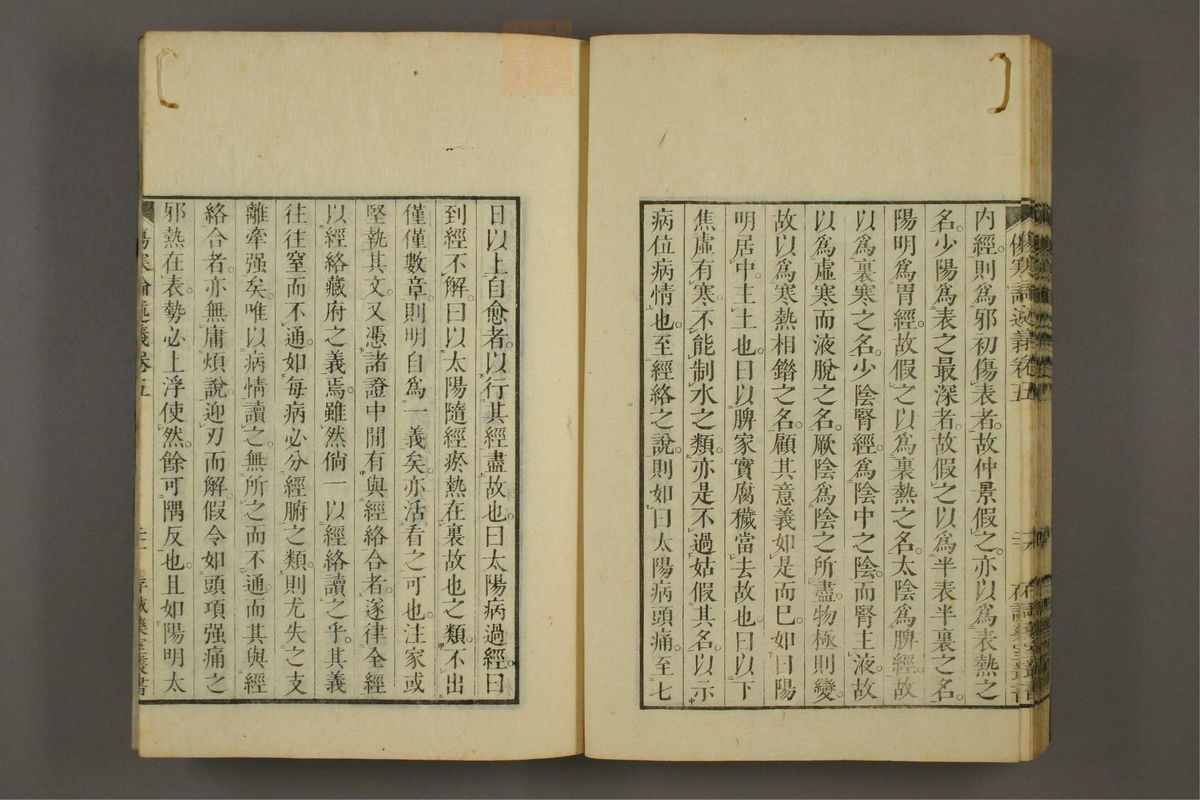 內經則爲邪初傷表者故仲景假之亦以爲表熱之
名少陽爲表之最深者故假之以爲半表半裏之名
陽明爲胃經故假之以爲裏熱之名太陰爲脾經故
以爲裏寒之名少陰腎經爲陰中之陰而腎主液故
以爲虛寒而液脫之名厥陰爲陰之所盡物極則變
故以爲寒熱相錯之名顧其意義如是而已如曰陽
明居中主土也曰以脾家實腐穢當去故也曰以下
焦虛有寒不能制水之類亦是不過姑假其名以示
病位病情也至經絡之說則如曰太陽病頭痛至七
日以上自愈者以行其經盡故也曰太陽病過經曰
到經不解曰以太陽隨經瘀熱在裏故也之類不出
僅僅數章則明自爲一義矣亦活看之可也注家或
堅執其文又憑諸證中間有與經絡合者遂律全經
以經絡藏府之義焉雖然倘一以經絡讀之乎其義
往往窒而不通如每病必分經腑之類則尤失之支
離牽强矣唯以病情讀之無所之而不通而其與經
絡合者亦無庸煩說迎刃而解假令如頭項强痛之
邪熱在表勢必上浮使然餘可隅反也且如陽明太
傷寒論述義卷五
存誠藥室叢書